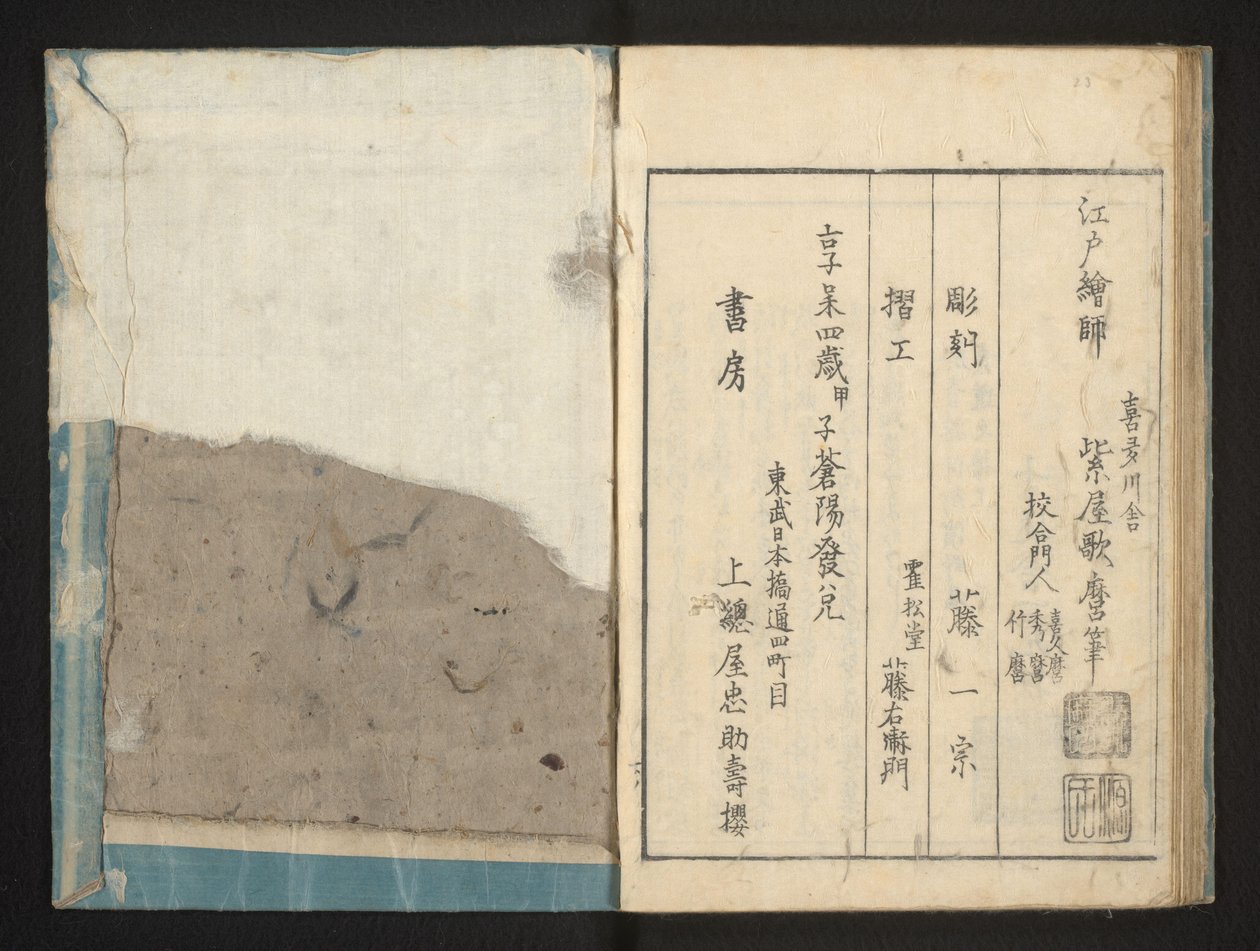 江戸繪師
喜多川舎
紫屋歌麿筆
校合門人
喜久麿
秀麿
竹麿
彫刻 藤一宗
摺工 霍松堂 藤右衛門
享和四歳甲子蒼陽發兌
東武日本橋通四町目
書房 上總屋忠助壽櫻
23